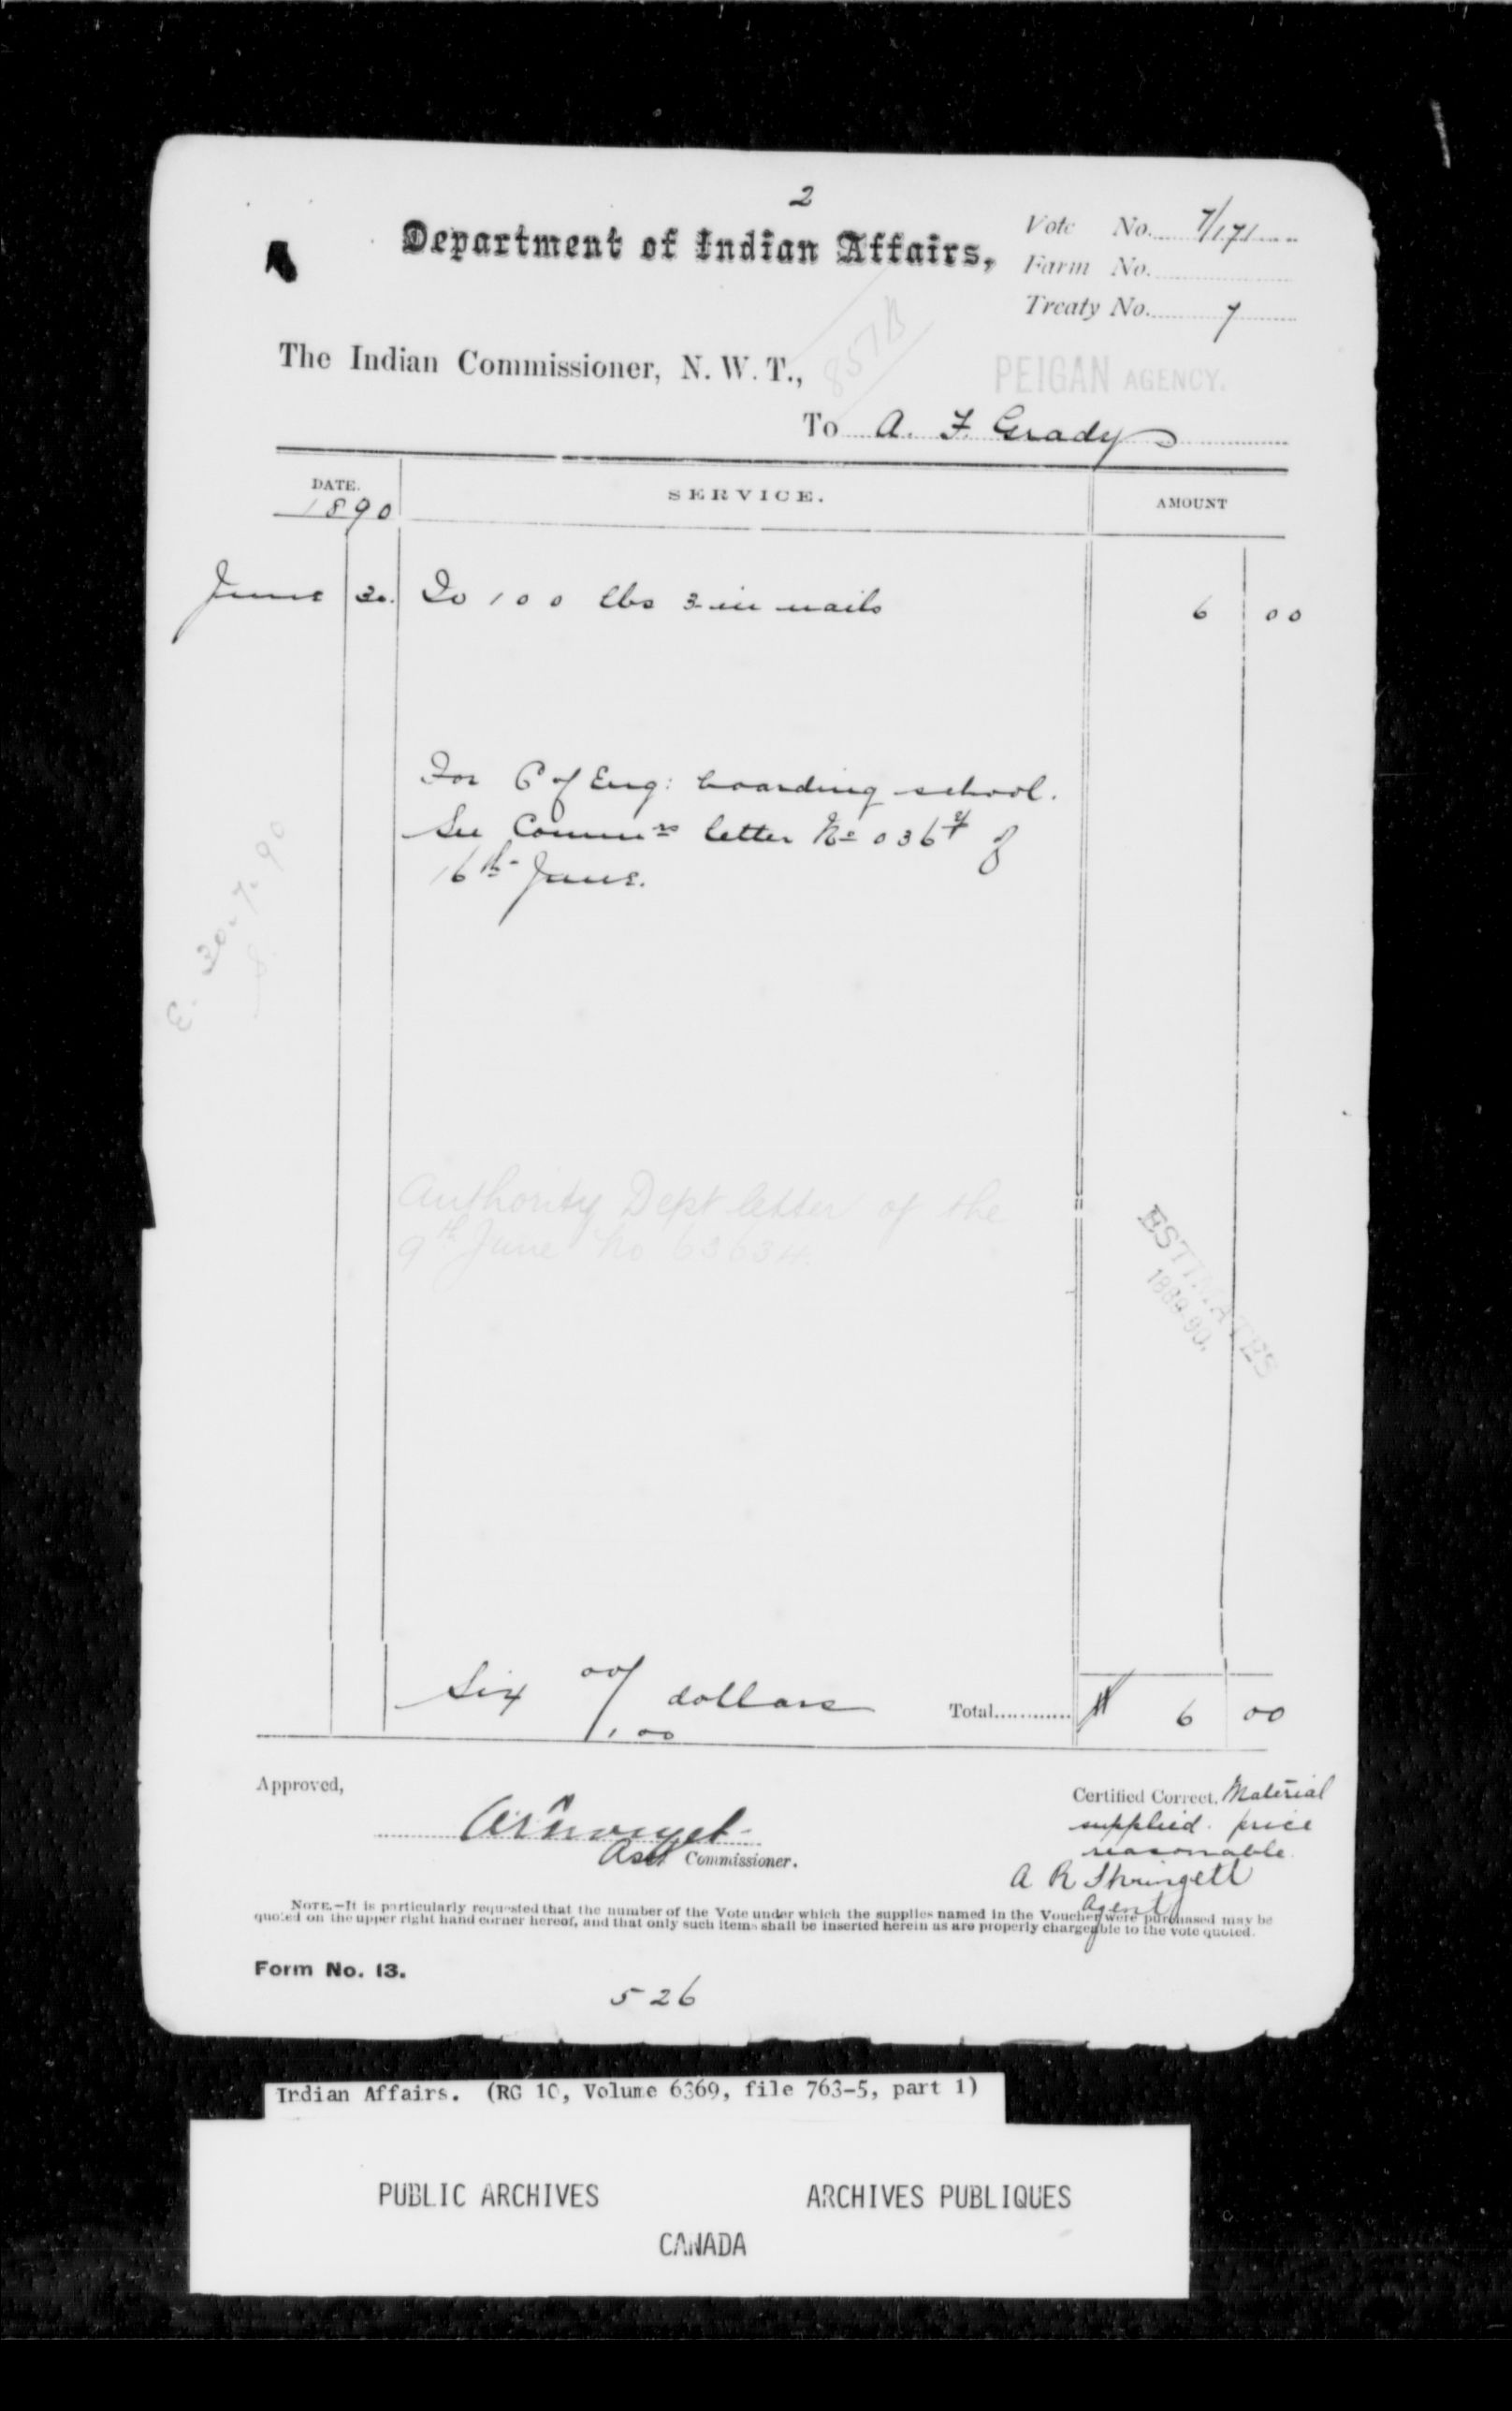 2
Department of Indian Affairs,
Vote No. 7/171
Farm No.
Treaty No. 7
857B
The Indian Commissioner, N. W. T.,
PEIGAN AGENCY.
To A. F. Grady
DATE. SERVICE. AMOUNT
1890
June 30. To 100 lbs 3 in nails 6 00
For C of Eng: boarding school.
See Commrs letter No 036 of
16th June.
E. 30-7-90
Authority Dept letter of the
9th June No 63634
ESTIMATES
1889-90.
Six 00/100 dollars Total............ $ 6 00
Approved,
Certified Correct. Material
supplied. price
reasonable
Asst Commissioner.
A R Springett
Agent
NOTE.—It is particularly requested that the number of the Vote under which the supplies named in the Voucher were purchased may be
quoted on the upper right hand corner hereof, and that only such items shall be inserted herein as are properly chargeable to the vote quoted.
Form No. 13.
526
Indian Affairs. (RG 10, Volume 6369, file 763-5, part 1)
PUBLIC ARCHIVES ARCHIVES PUBLIQUES
CANADA